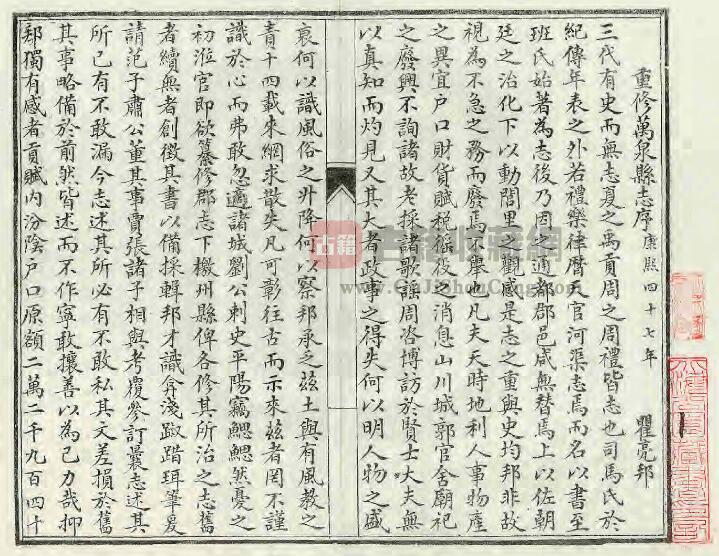 重修萬泉縣志序 康熙四十七年 瞿亮邦
三代有史而無志夏之禹貢周之周禮皆志也司馬氏於
紀傳年表之外若禮樂律曆天官河渠志焉而名以書至
班氏始著為志後乃因之通都郡邑咸無替焉上以佐朝
廷之治化下以動閭里之觀感是志之重與史均邦非故
視為不急之務而廢焉不舉也凡夫天時地利人事物產
之異宜戶口財貨賦稅徭役之消息山川城郭官舍廟祀
之廢興不詢諸故老採諸歌謡周咨博訪於賢士大夫無
以真知而灼見又其大者政事之得失何以明人物之盛
衰何以識風俗之升降何以察邦承乏茲土與有風教之
責十四載來網求散失凡可彰往古而示來茲者罔不謹
識於心而弗敢忽適諸城劉公刺史平陽竊鰓鰓然憂之
初涖官即欲纂修郡志下檄州縣俾各修其所治之志舊
者續無者創徵其書以備採輯邦才識弇淺踧踖珥筆爰
請范子肅公董其事賈張諸子相與考覆參訂曩志述其
所已有不敢漏今志述其所必有不敢私其文差損於舊
其事略備於前然皆述而不作寧敢攘善以為己力哉抑
邦獨有感者貢賦內汾陰戶口原額二萬二千九百四十
古籍
古籍收藏網
www.GJShouCang.com